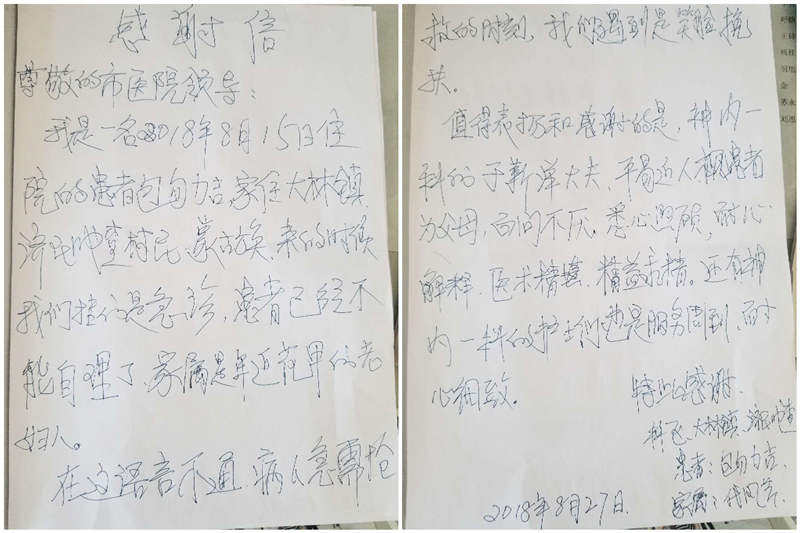 感谢信
尊敬的市医院领导：
我是一名2018年8月15日住
院的患者包旬力吉，家住大林镇
村民、蒙古族、来的时候
我们挂的是急诊，患者已经不
能自理了，家属是年近花甲的老
妇人。
在这语言不通，病人急需抢
救的时刻，我们遇到是笑脸搀
扶。
值得表扬和感谢的是，神内一
科的于靳萍大夫、平易近人视患者
为父母，百问不厌，悉心照顾，耐心
解释、医术精湛、精益求精。还有神
内一科的护士们也是服务周到、耐
心细致。
特此感谢
科区、大林镇、
患者：包旬力吉
家属：代风芹
2018年8月27日
王
杨桂
金
苏永
刘思